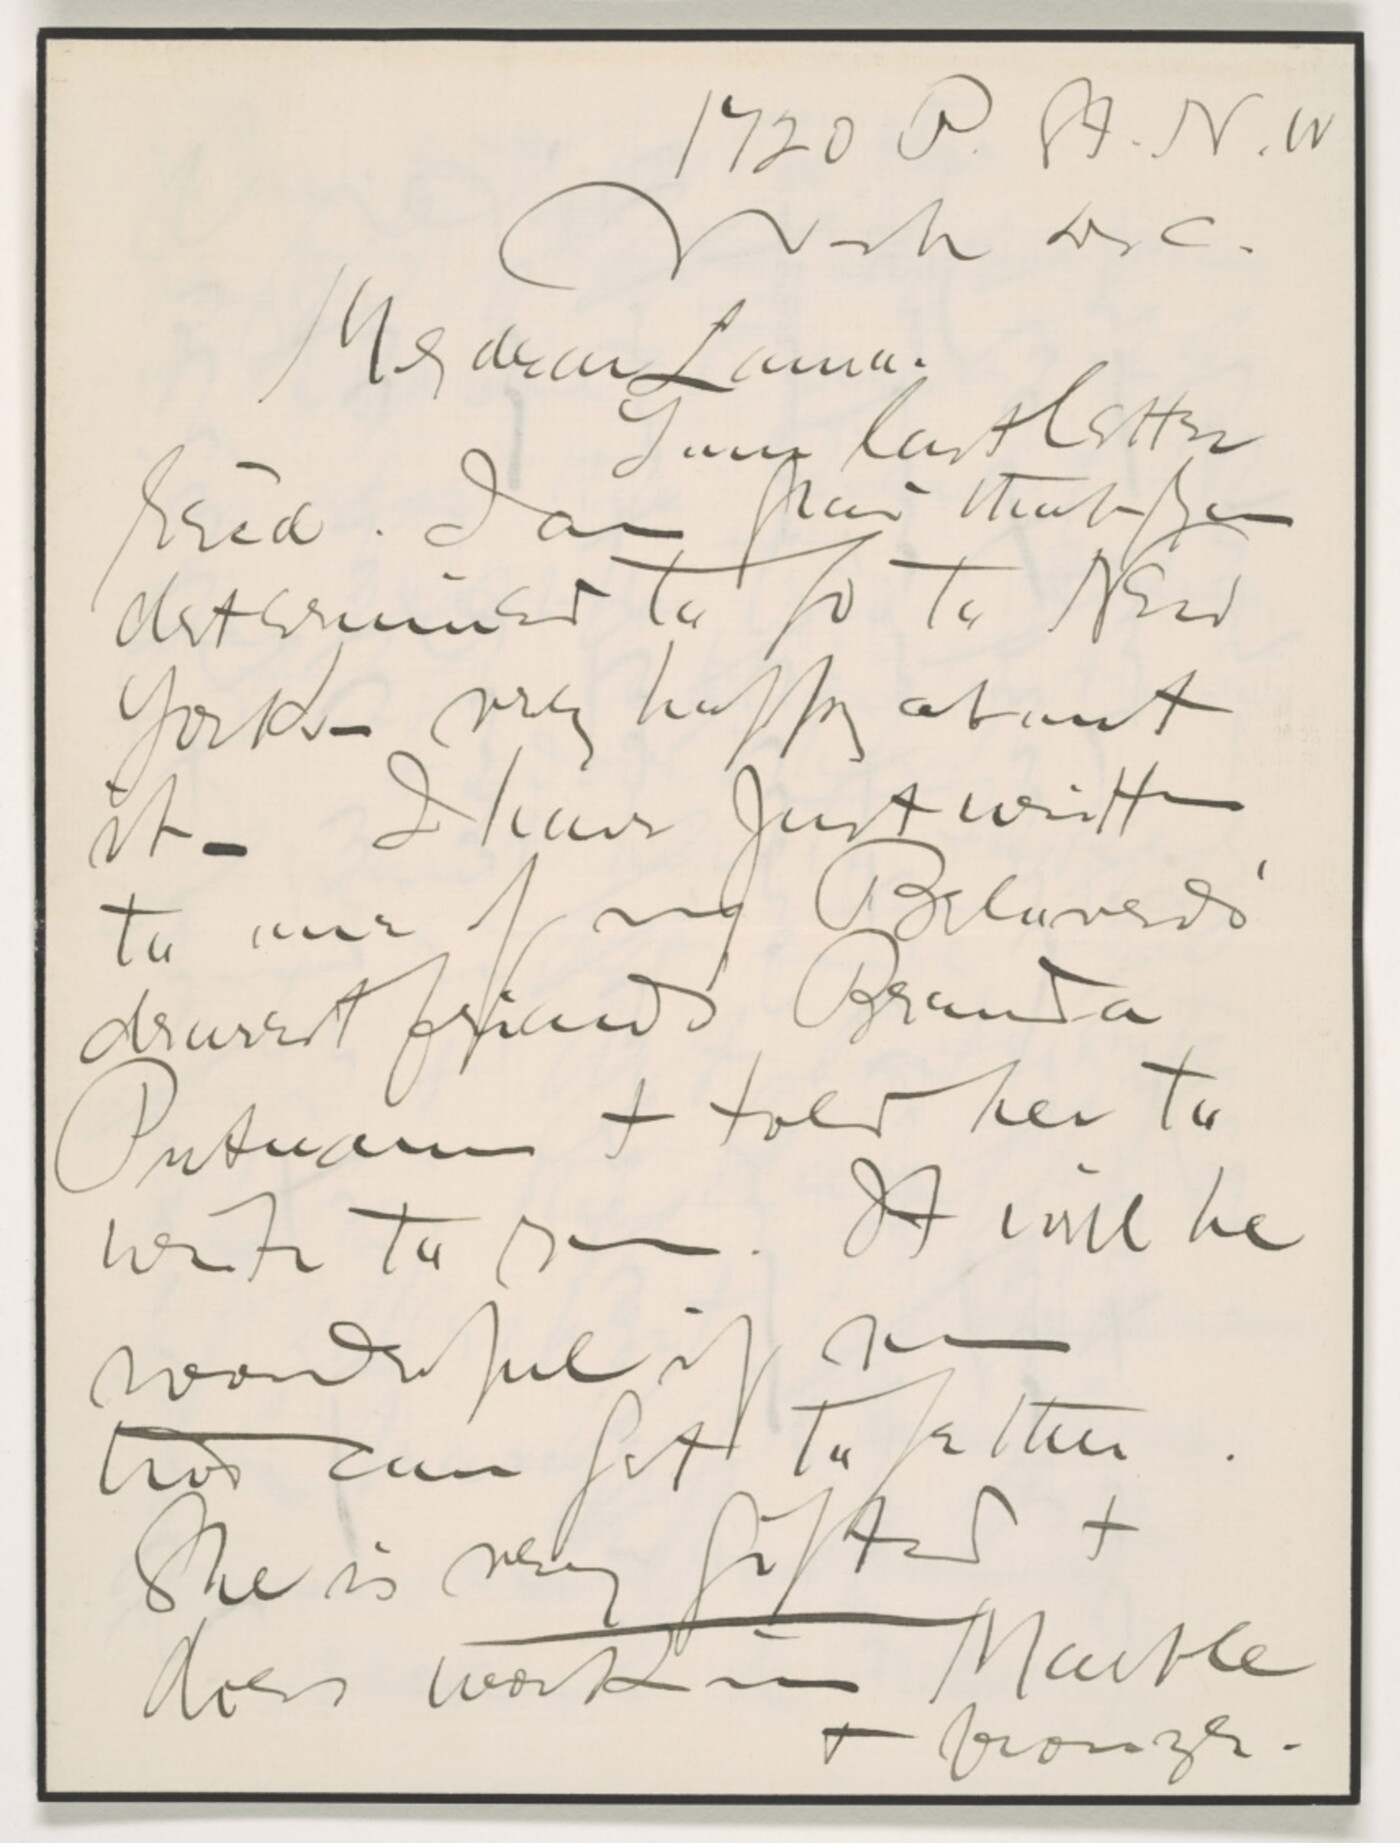 1720 P. St. N.W
Wash D.C.
My dear Laura.
Your last letter
rec'd. I am glad that you
determined to go to New
York - very happy about
it - I have just written
to one of my Beloveds'
dearest friends Brenda
Putnam + told her to
write to you. It will be
wonderful if you
two can get together.
She is very gifted +
does work in Marble
+ bronze.